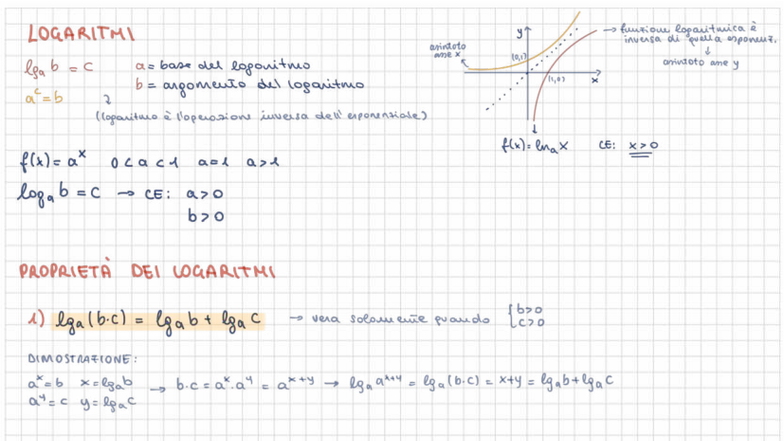 LOGARITMI
lg_a b = c    a = base del logaritmo
b = argomento del logaritmo
a^c = b
(logaritmo è l'operazione inversa dell'esponenziale)
y
asintoto
asse x
(0,1)
(1,0)
x
→ funzione logaritmica è
inversa di quella esponenz.
↓
asintoto asse y
f(x) = ln_a x    CE: x > 0
f(x) = a^x    0 < a < 1    a = 1    a > 1
log_a b = c → CE: a > 0
b > 0
PROPRIETÀ DEI LOGARITMI
1) lg_a (b·c) = lg_a b + lg_a c → vera solamente quando { b>0
c>0
DIMOSTRAZIONE:
a^x = b    x = lg_a b → b·c = a^x · a^y = a^(x+y) → lg_a a^(x+y) = lg_a (b·c) = x+y = lg_a b + lg_a c
a^y = c    y = lg_a c